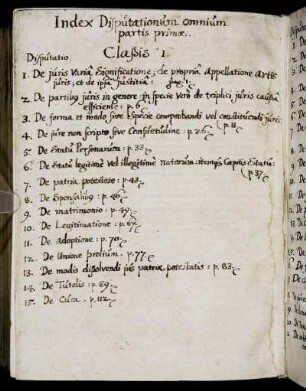 Index Disputationum omnium
partis primæ.
Disputatio Classis 1.
1. De juris Varia Significatione, de propria appellatione artis
juris, et de ipsa justitia: pag: 1.
2. De partibus juris in genere: in specie vero de triplici juris causa
efficiente: p. 6.
3. De forma et modo sive specie comprobandi vel constituendi juris:
p. 11
4. De jure non scripto sive Consuetudine: p. 26.
5. De statu Personarum: p. 33
6. De statu legitime vel illegitime natorum: itemque Capitis statu:
p. 37
7. De patria potestate: p. 43.
8. De Sponsalibus: p. 46
9. De matrimonio: p. 47
10. De Legitimatione: p. 67
11. De adoptione: p. 70
12. De Unione prolium: p. 77
13. De modis dissolvendi jus patriæ potestatis: p. 83
14. De Tutelis: p. 89
15. De Cura: p. 112